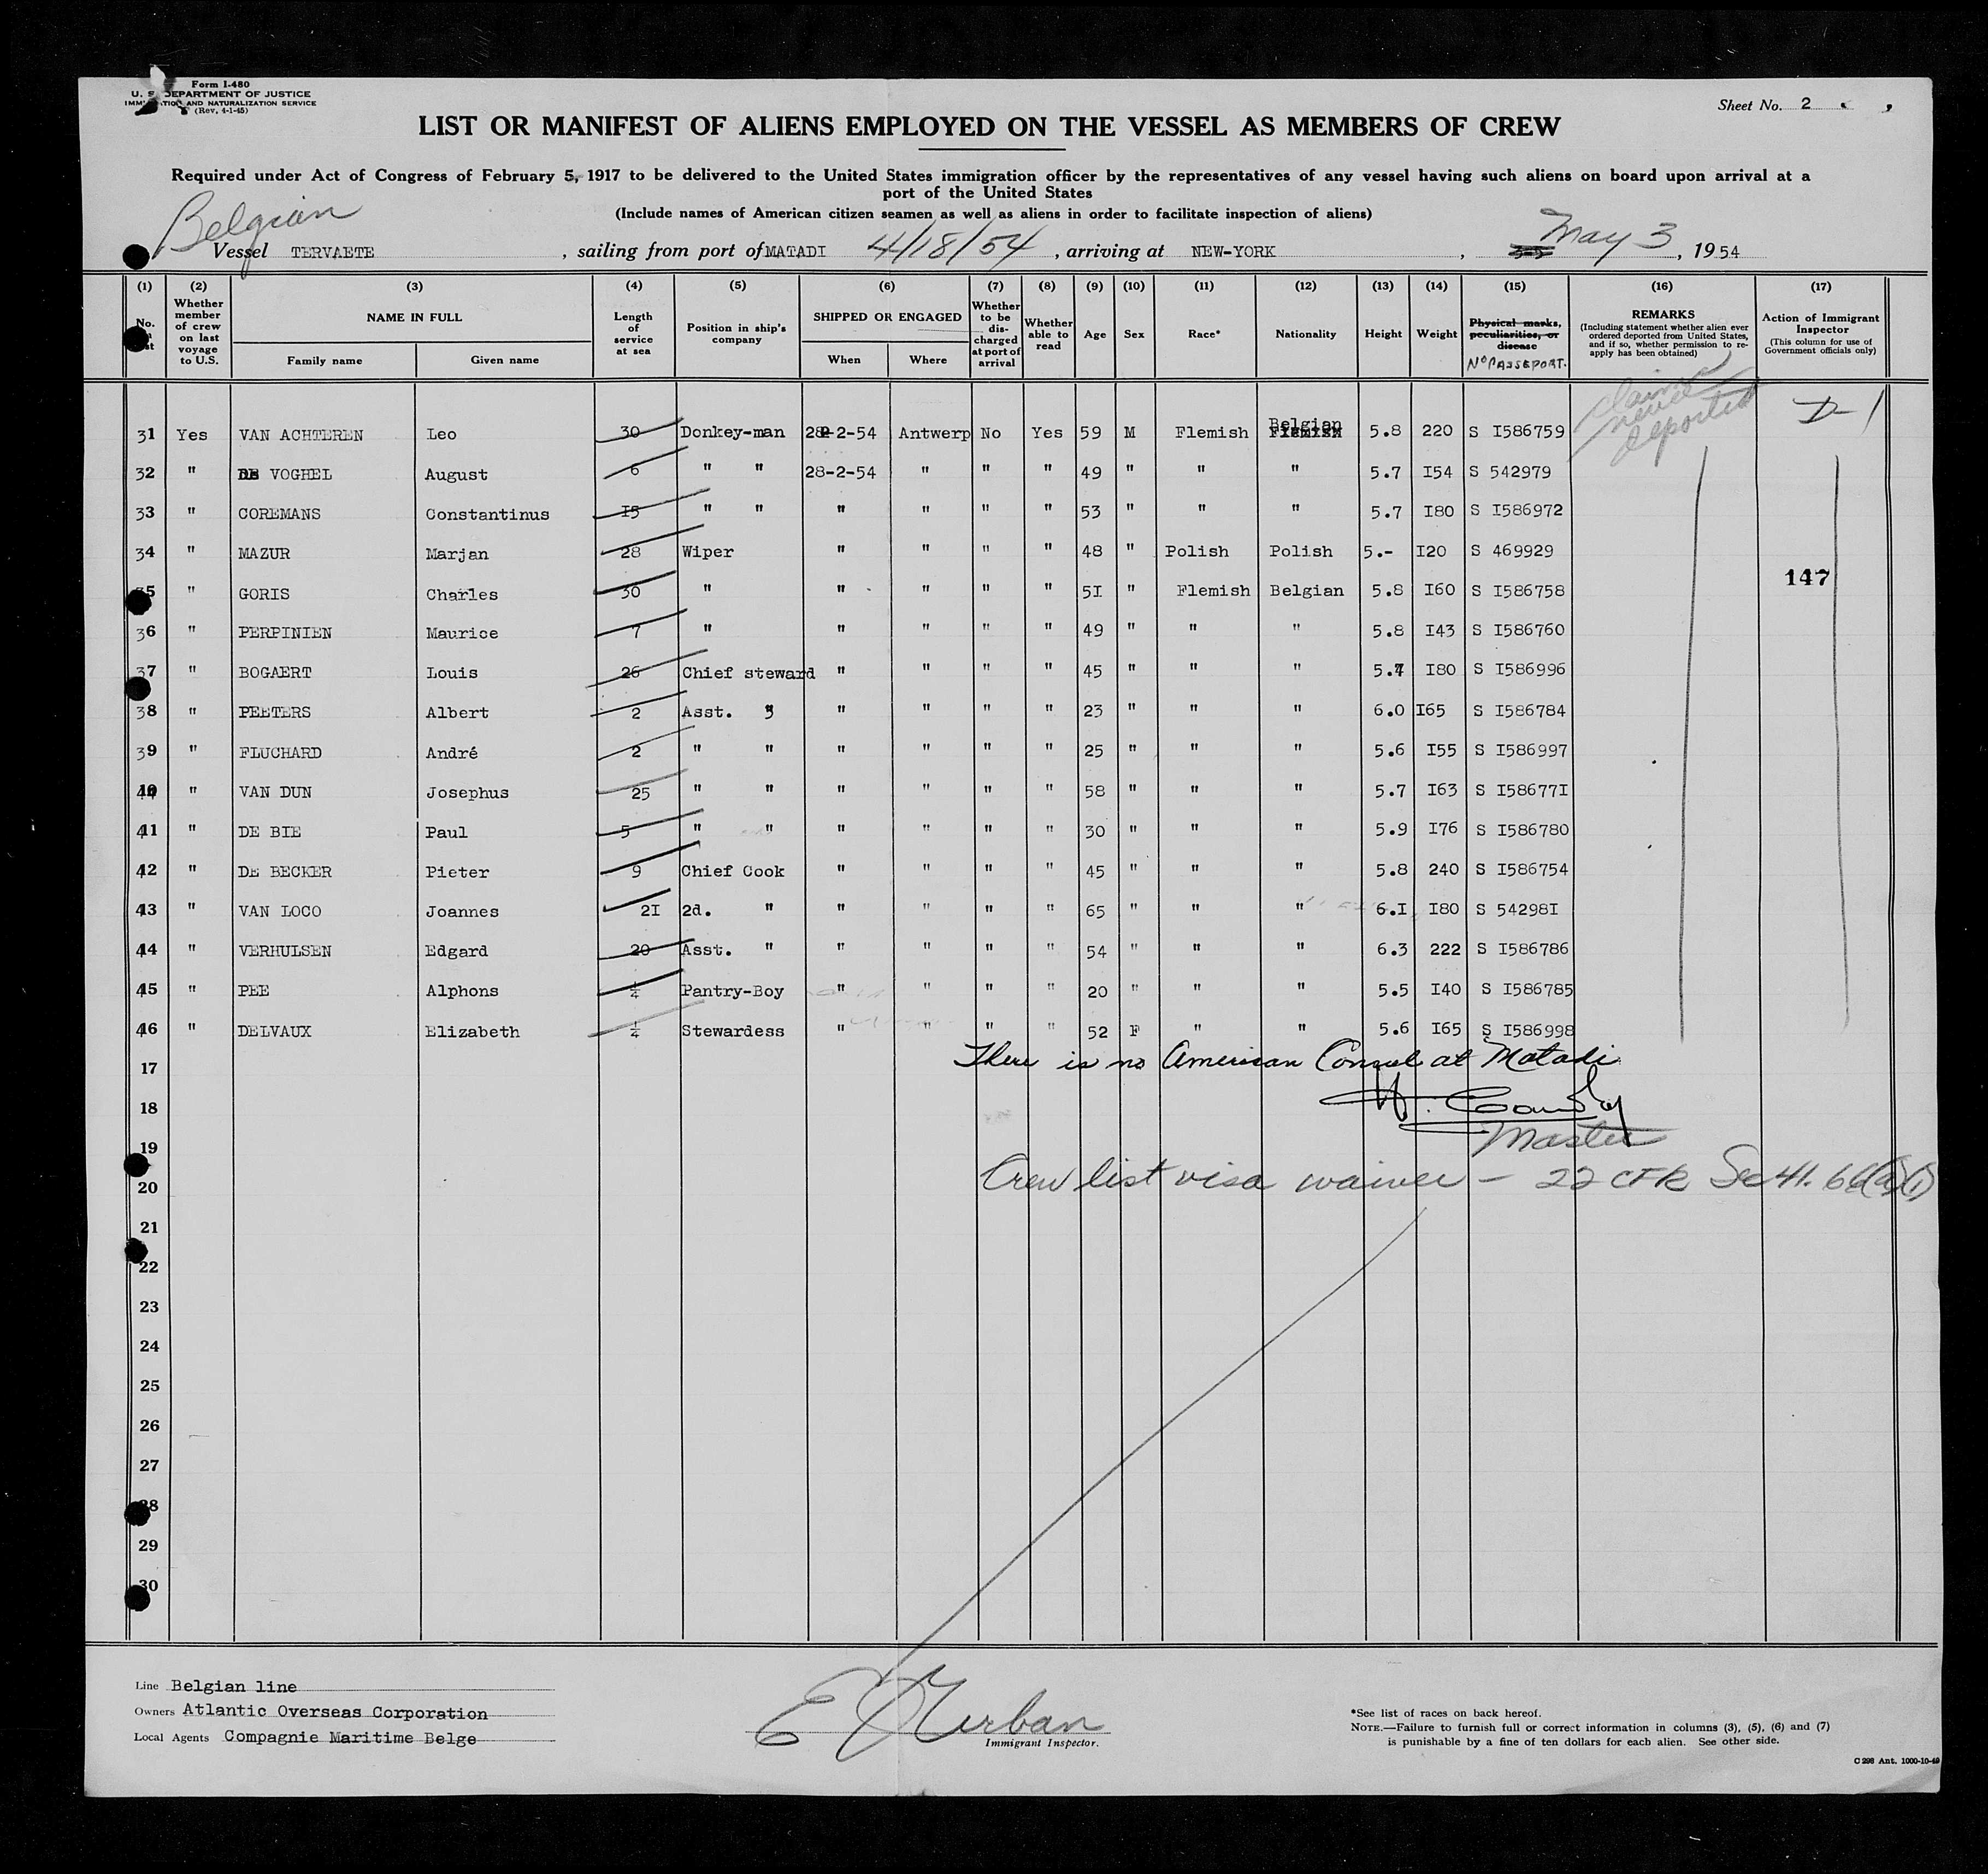 Form I-480
U. S. DEPARTMENT OF JUSTICE
AND NATURALIZATION SERVICE
(Rev. 4-1-45)
Sheet No. 2
LIST OR MANIFEST OF ALIENS EMPLOYED ON THE VESSEL AS MEMBERS OF CREW
Required under Act of Congress of February 5, 1917 to be delivered to the United States immigration officer by the representatives of any vessel having such aliens on board upon arrival at a
port of the United States
(Include names of American citizen seamen as well as aliens in order to facilitate inspection of aliens)
Belgian
Vessel TERVAETE, sailing from port of MATADI 4/18/54, arriving at NEW-YORK, May 3, 1954
(1) (2) (3) (4) (5) (6) (7) (8) (9) (10) (11) (12) (13) (14) (15) (16) (17)
No. Whether member of crew on last voyage to U.S. NAME IN FULL Family name Given name Length of service at sea Position in ship's company SHIPPED OR ENGAGED When Where Whether to be discharged at port of arrival Whether able to read Age Sex Race* Nationality Height Weight Physical marks, peculiarities, or disease No PASSEPORT. REMARKS (Including statement whether alien ever ordered deported from United States, and if so, whether permission to re-apply has been obtained) Action of Immigrant Inspector (This column for use of Government officials only)
claims never deported
31 Yes VAN ACHTEREN Leo 30 Donkey-man 28-2-54 Antwerp No Yes 59 M Flemish Belgian 5.8 220 S I586759 D-1
32 " DE VOGHEL August 6 " " 28-2-54 " " " 49 " " " 5.7 I54 S 542979
33 " COREMANS Constantinus I5 " " " " " " 53 " " " 5.7 I80 S I586972
34 " MAZUR Marjan 28 Wiper " " " " 48 " Polish Polish 5.- I20 S 469929
35 " GORIS Charles 30 " " " " " 5I " Flemish Belgian 5.8 I60 S I586758 147
36 " PERPINIEN Maurice 7 " " " " " 49 " " " 5.8 I43 S I586760
37 " BOGAERT Louis 26 Chief steward " " " " 45 " " " 5.7 I80 S I586996
38 " PEETERS Albert 2 Asst. " " " " " 23 " " " 6.0 I65 S I586784
39 " FLUCHARD André 2 " " " " " " 25 " " " 5.6 I55 S I586997
40 " VAN DUN Josephus 25 " " " " " " 58 " " " 5.7 I63 S I58677I
41 " DE BIE Paul 5 " " " " " " 30 " " " 5.9 I76 S I586780
42 " DE BECKER Pieter 9 Chief Cook " " " " 45 " " " 5.8 240 S I586754
43 " VAN LOCO Joannes 2I 2d. " " " " " 65 " " " 6.I I80 S 54298I
44 " VERHULSEN Edgard 20 Asst. " " " " " 54 " " " 6.3 222 S I586786
45 " PEE Alphons ¼ Pantry-Boy " " " " 20 " " " 5.5 I40 S I586785
46 " DELVAUX Elizabeth ¼ Stewardess " " " " 52 F " " 5.6 I65 S I586998
There is no American Consul at Matadi
17
18
Master
19
Crew list visa waiver - 22 CFR Sec 41.
20
21
22
23
24
25
26
27
28
29
30
Line Belgian line
Owners Atlantic Overseas Corporation
Local Agents Compagnie Maritime Belge
E Urban
Immigrant Inspector.
*See list of races on back hereof.
NOTE.—Failure to furnish full or correct information in columns (3), (5), (6) and (7)
is punishable by a fine of ten dollars for each alien. See other side.
C 298 Ant. 1000-10-49